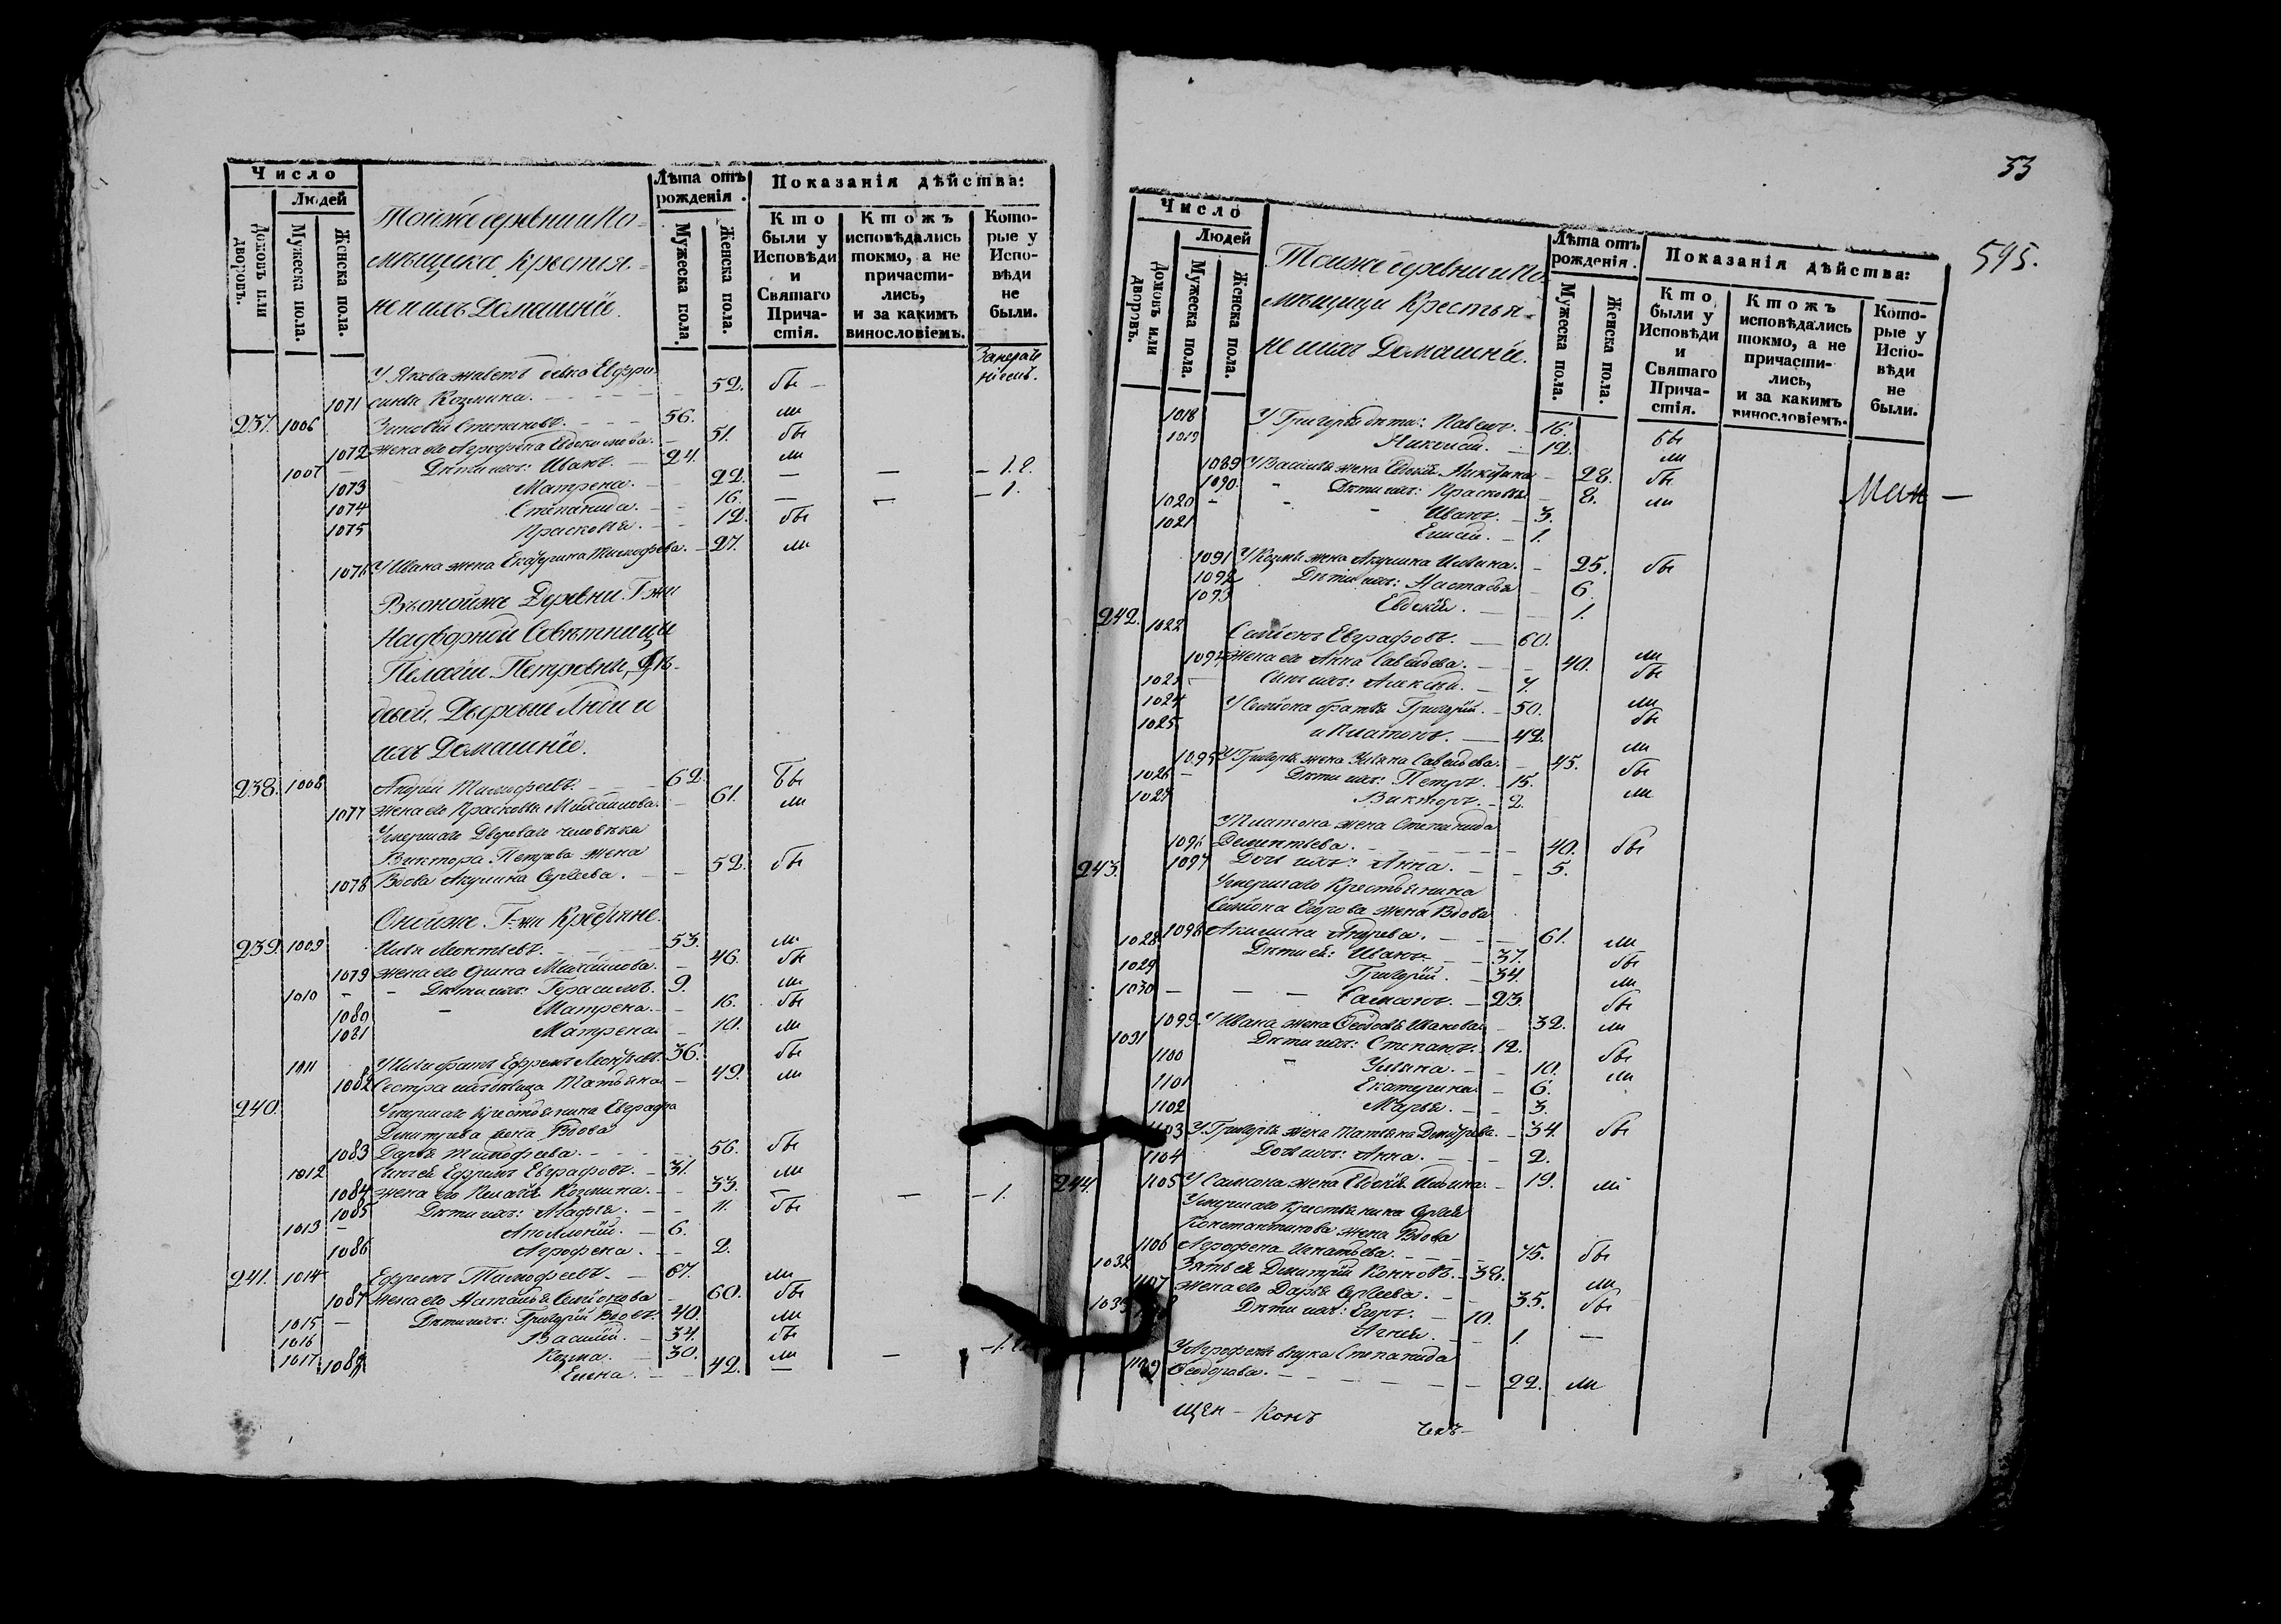 Число
Людей
Домовъ или дворовъ.
Мужеска пола.
Женска пола.
Тойже деревни и По-
мѣщика Крестья-
не и ихъ Домашнiе.
Лѣта отъ рожденiя.
Мужеска пола
Женска пола.
Показанiя дѣйства:
Кто были у Исповѣди и Святаго Прича-стiя.
Ктожъ исповѣдались токмо, а не причасти-лись, и за какимъ винословiемъ.
Кото-рые у Испо-вѣди не были.
У Якова живетъ девка Евфро-
1071 синья Козмина. 52. бы
237. 1006 Зиновей Степановъ. 56. ли
1072 жена его Агрофена Евдокимова. 51. бы
1007 Дѣти ихъ: Иванъ. 24. ли
1073 Матрена. 22. — — — 1. 2.
1074 Степанида. 16. — — — 1.
1075 Прасковья. 12. бы
1076 У Ивана жена Екатерина Тимофеева. 27. ли
Въ онойже Деревни Г-жи
Надворной Совѣтницы
Пелагiи Петровны
Дворовые Люди и
ихъ Домашнiе.
238. 1008 Андрей Тимофеевъ. 62. бы
1077 жена его Прасковья Михайлова. 61. ли
Умершаго Двороваго человѣка
Виктора Петрова жена
1078 Вдова Акулина Сергѣева. 52. бы
Онойже Г-жи Крестьяне.
239. 1009 Илья Леонтьевъ. 53. ли
1079 жена его Орина Михайлова. 46. бы
1010 Дѣти ихъ: Герасимъ. 9. ли
1080 Матрена. 16. бы
1081 Матрена. 10. ли
1011 У Ильи братъ Ефремъ Леонтьевъ. 36. бы
1082 Сестра ихъ девица Татьяна 49. ли
240. Умершаго Крестьянина Евграфа
Дмитрева жена Вдова
1083 Дарья Тимофеева. 56. бы
1012 Сынъ ея Ефремъ Евграфовъ. 31. ли
1084 жена его Пелагѣя Козмина. 33. — — — 1.
1085 Дѣти ихъ: Агафья. 11. бы
1013 Аполлонiй. 6.
1086 Агрофена. 2.
241. 1014 Ефремъ Тимофеевъ. 67. ли
1087 жена его Наталья Семiонова 60. бы
1015 Дѣти ихъ: Григорiй Вдовъ. 40. ли
1016 Василiй. 34. бы
1017 Козма. 30. ли
1088 Елена. 42. —
33
595.
Число
Людей
Домовъ или дворовъ.
Мужеска пола.
Женска пола.
Тойже деревни и По-
мѣщицы Крестья-
не и ихъ Домашнiе.
Лѣта отъ рожденiя.
Мужеска пола.
Женска пола.
Показанiя дѣйства:
Кто были у Исповѣди и Святаго Прича-стiя.
Ктожъ исповѣдались токмо, а не причасти-лись, и за какимъ винословiемъ.
Кото-рые у Испо-вѣди не были.
1018 У Григорья дѣти: Павелъ. 16. бы
1019 Николай. 12. ли
1089 У Василья жена Евдокiя Никитина 28. бы
1090 Дѣти ихъ: Прасковья 8. ли
Мал —
1020 Иванъ. 3.
1021 Елисей. 1.
1091 У Козмы жена Акулина Ильина. 25. бы
1092 Дѣти ихъ: Настасья 6.
1093 Евдокiя. 1.
242. 1022 Семiонъ Евграфовъ. 60. ли
1094 жена его Анна Савельева. 40. бы
1023 Сынъ ихъ: Алексѣй. 7. ли
1024 У Семiона братья Григорiй. 50. бы
1025 и Платонъ. 42. ли
1095 У Григорья жена Ульяна Савельева. 45. бы
1026 Дѣти ихъ: Петръ. 15. ли
1027 Викторъ. 2.
У Платона жена Степанида
1096 Дементьева. 40. бы
243. 1097 Дочь ихъ: Анна. 5.
Умершаго Крестьянина
Семiона Егорова жена Вдова
1098 Акилина Андрева. 61. ли
1028 Дѣти ея: Иванъ. 37. бы
1029 Григорiй. 34. ли
1030 Самсонъ. 23. бы
1099 У Ивана жена Феодосья Иванова 32. ли
1031 Дѣти ихъ: Степанъ. 12. бы
1100 Ульяна. 10. ли
1101 Екатерина. 6.
1102 Марья. 3.
1103 У Григорья жена Татьяна Дмитрева. 34. бы
1104 Дочь ихъ: Анна. 2.
244. 1105 У Самсона жена Евдокiя Ильина. 19. ли
Умершаго Крестьянина Сергѣя
Константинова жена Вдова
1106 Агрофена Игнатьева. 75. бы
1032 Зять ея Дмитрiй Кононовъ. 38. ли
1107 жена его Дарья Сергѣева. 35. бы
1033 Дѣти ихъ: Егоръ. 10.
Агнiя. 1. —
У Агрофены внука Степанида
1109 Феодорова. 22. ли